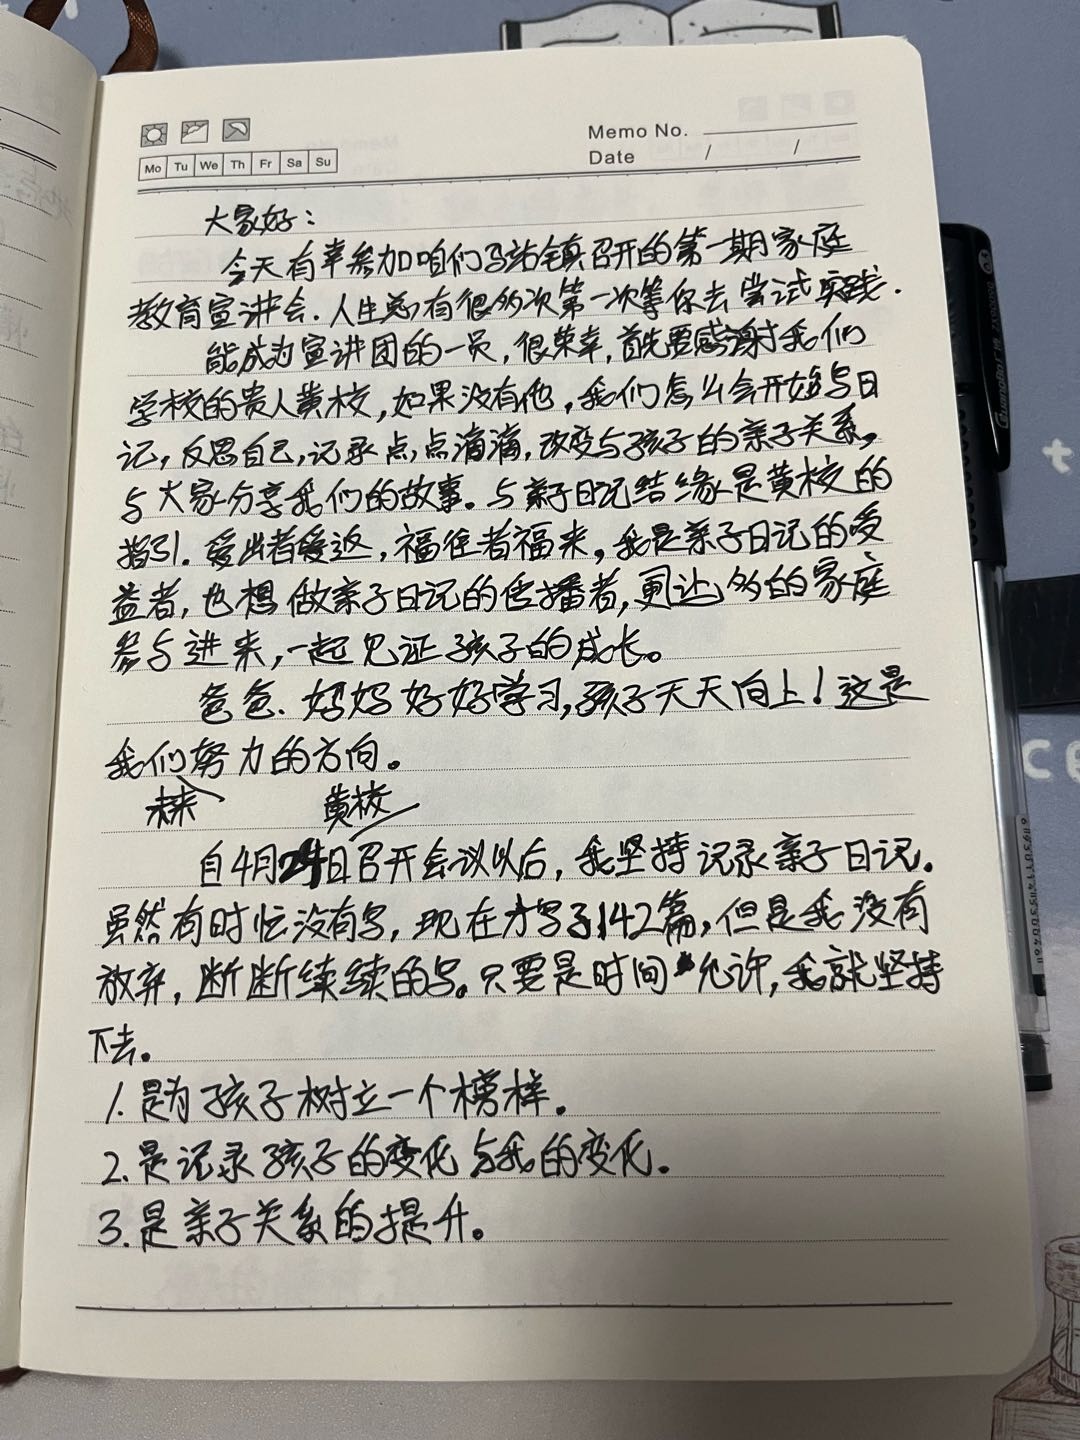 Memo No.
Date / /
Mo Tu We Th Fr Sa Su
大家好：
今天有幸参加咱们马站镇召开的第一期家庭
教育宣讲会.人生总有很多次第一次等你去尝试实践.
能成为宣讲团的一员,很荣幸,首先要感谢我们
学校的贵人黄校,如果没有他,我们怎么会开始写日
记,反思自己,记录点点滴滴,改变与孩子的亲子关系。
与大家分享我们的故事。与亲子日记结缘是黄校的
指引.爱出者爱返,福往者福来,我是亲子日记的受
益者,也想做亲子日记的传播者,更让多的家庭
参与进来,一起见证孩子的成长。
爸爸.妈妈好好学习,孩子天天向上!这是
我们努力的方向。
未来 黄校
自4月24日召开会议以后,我坚持记录亲子日记.
虽然有时忙没有写,现在才写了142篇,但是我没有
放弃,断断续续的写。只要是时间允许,我就坚持
下去.
1.是为孩子树立一个榜样.
2.是记录孩子的变化与我的变化.
3.是亲子关系的提升。
GuangBo广博